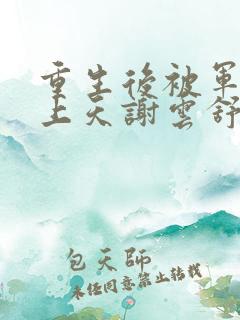 重生後被軍
上天謝雲舒
包天師
未經同意禁止轉載